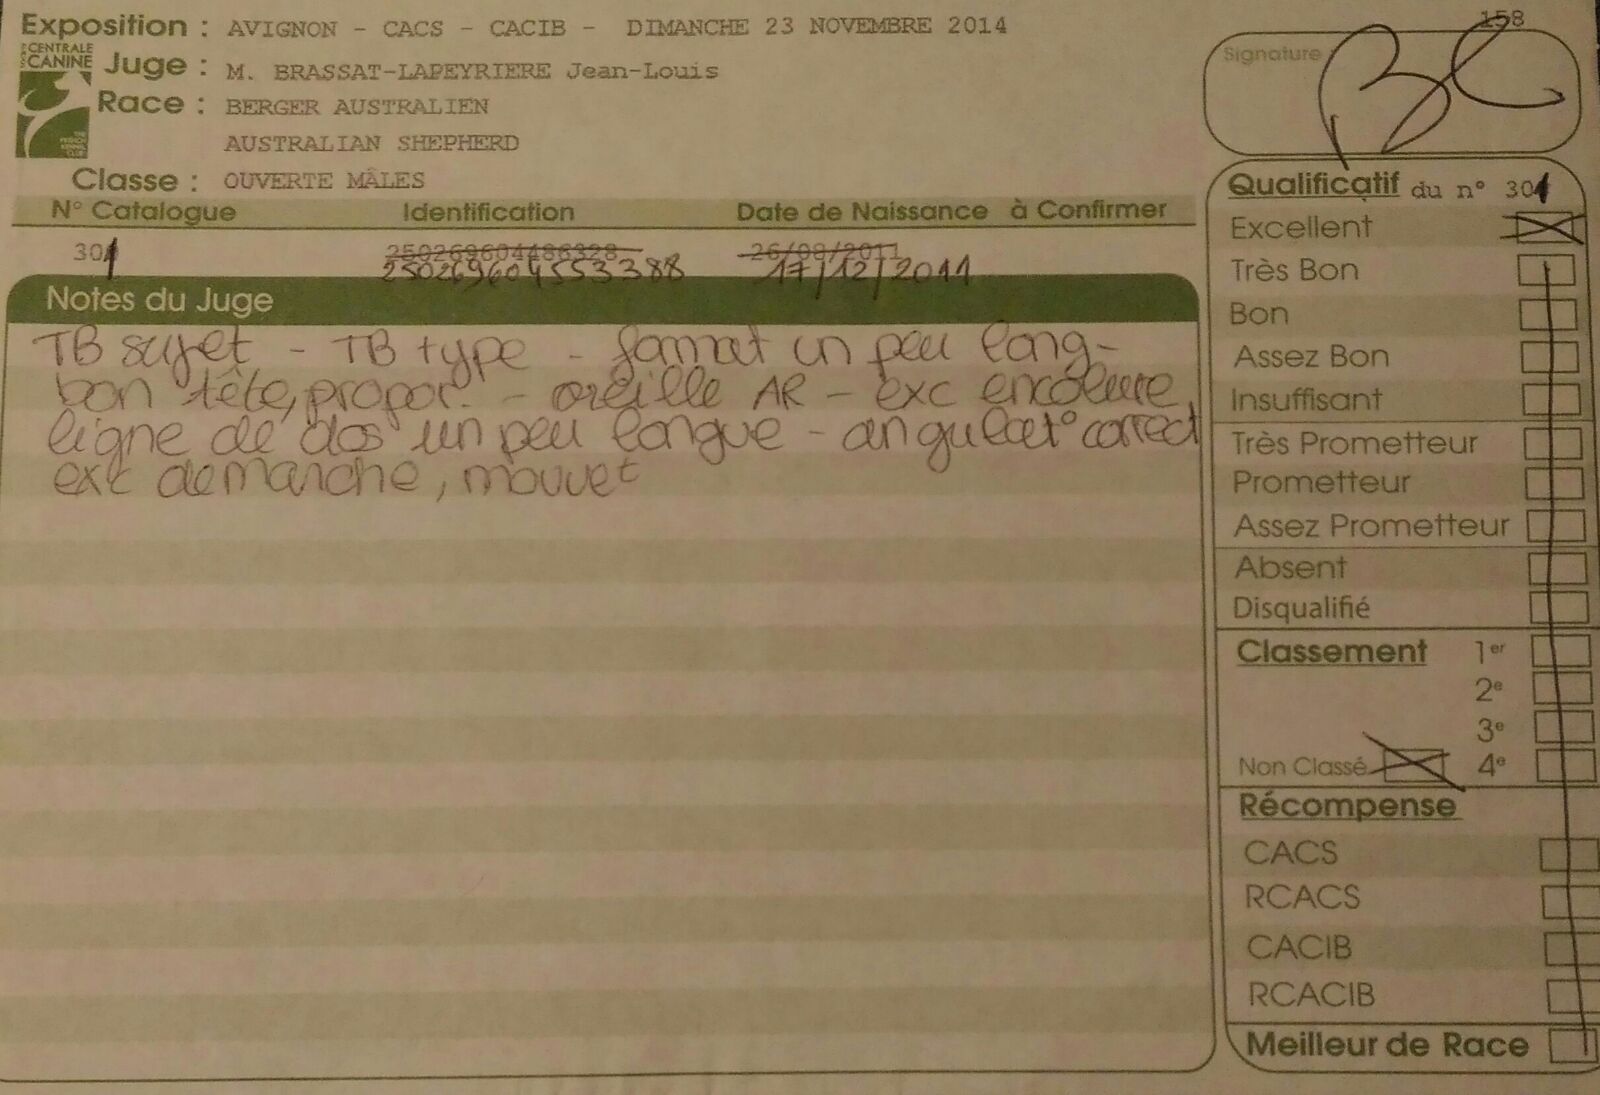 158
Exposition : AVIGNON - CACS - CACIB - DIMANCHE 23 NOVEMBRE 2014
CENTRALE CANINE
Juge : M. BRASSAT-LAPEYRIERE Jean-Louis
Race : BERGER AUSTRALIEN
AUSTRALIAN SHEPHERD
Classe : OUVERTE MÂLES
Signature
N° Catalogue Identification Date de Naissance à Confirmer
301 250269604486328 26/08/2011
250269604553388 17/12/2011
Notes du Juge
TB sujet - TB type - format un peu long -
bon tête, propor. - oreille AR - exc encolure
ligne de dos un peu longue - angulat° correct
exc démarche, mouvet
Qualificatif du n° 301
Excellent
Très Bon
Bon
Assez Bon
Insuffisant
Très Prometteur
Prometteur
Assez Prometteur
Absent
Disqualifié
Classement 1er
2e
3e
Non Classé 4e
Récompense
CACS
RCACS
CACIB
RCACIB
Meilleur de Race